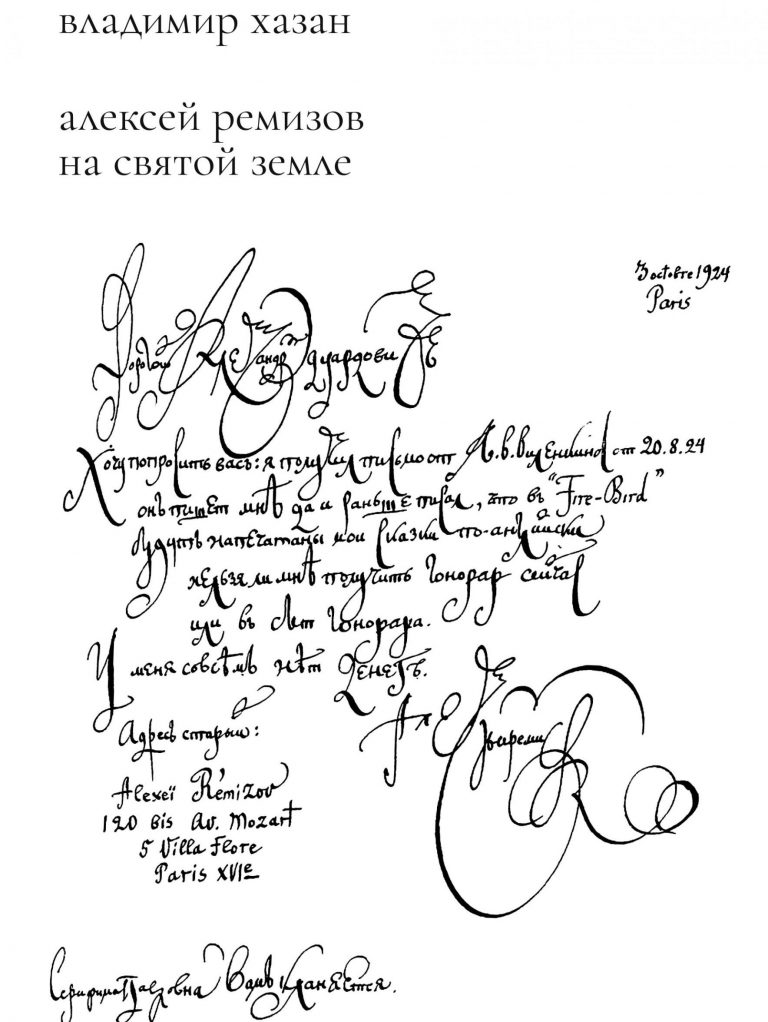 владимир хазан
алексей ремизов
на святой земле
3 octobre 1924
Paris
Дорогой Александр Эдуардович
Хочу попросить васъ: я получил письмо от А.В. от 20.8.24
онъ пишет мнѣ да и раньше писал, что въ "Fire-Bird"
будутъ напечатаны мои сказки по-английски
нельзя ли мнѣ получить гонорар сейчас
или въ счет гонорара.
У меня совсѣмъ нѣт денегъ.
Адресъ старый:
Alexeï Rémizov
120 bis Av. Mozart
5 Villa Flore
Paris XVIe
Серафима Павловна Вамъ кланяется.